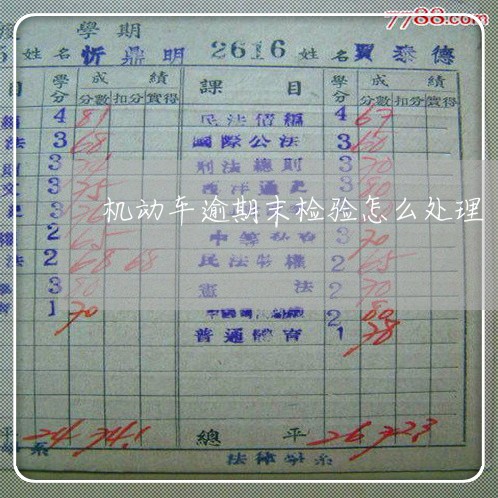 7788.com
學期
姓名 忻鼎明 2616 姓名 賈泰德
目 學分 成績 課目 學分 成績
分數 扣分 實得 分數 扣分 實得
4 81 民法債編 4 67
法 3 68 國際公法 3 60
3 刑法總則 3 70
3 75 西洋通史 3 80
机动车逾期末检验怎么处理
2 65 3 70
法 2 68 68 民法物權 2 65
3 80 憲法 2 70
1 70 2 80
普通體育 1 78
24 74.1 總平 26 72.3
系 法律學系